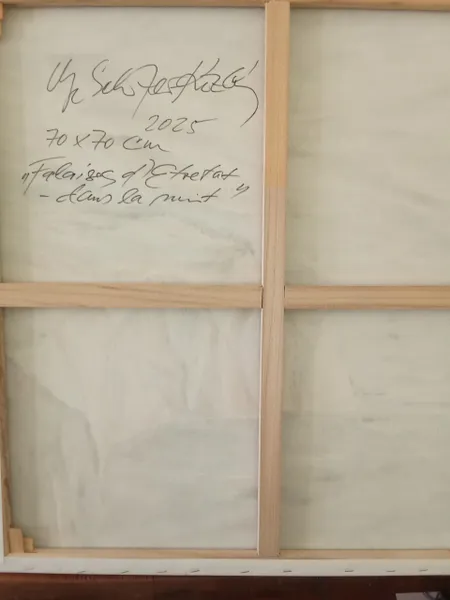 2025
70 x 70 cm
„Falaises d'Etretat
- dans la nuit”